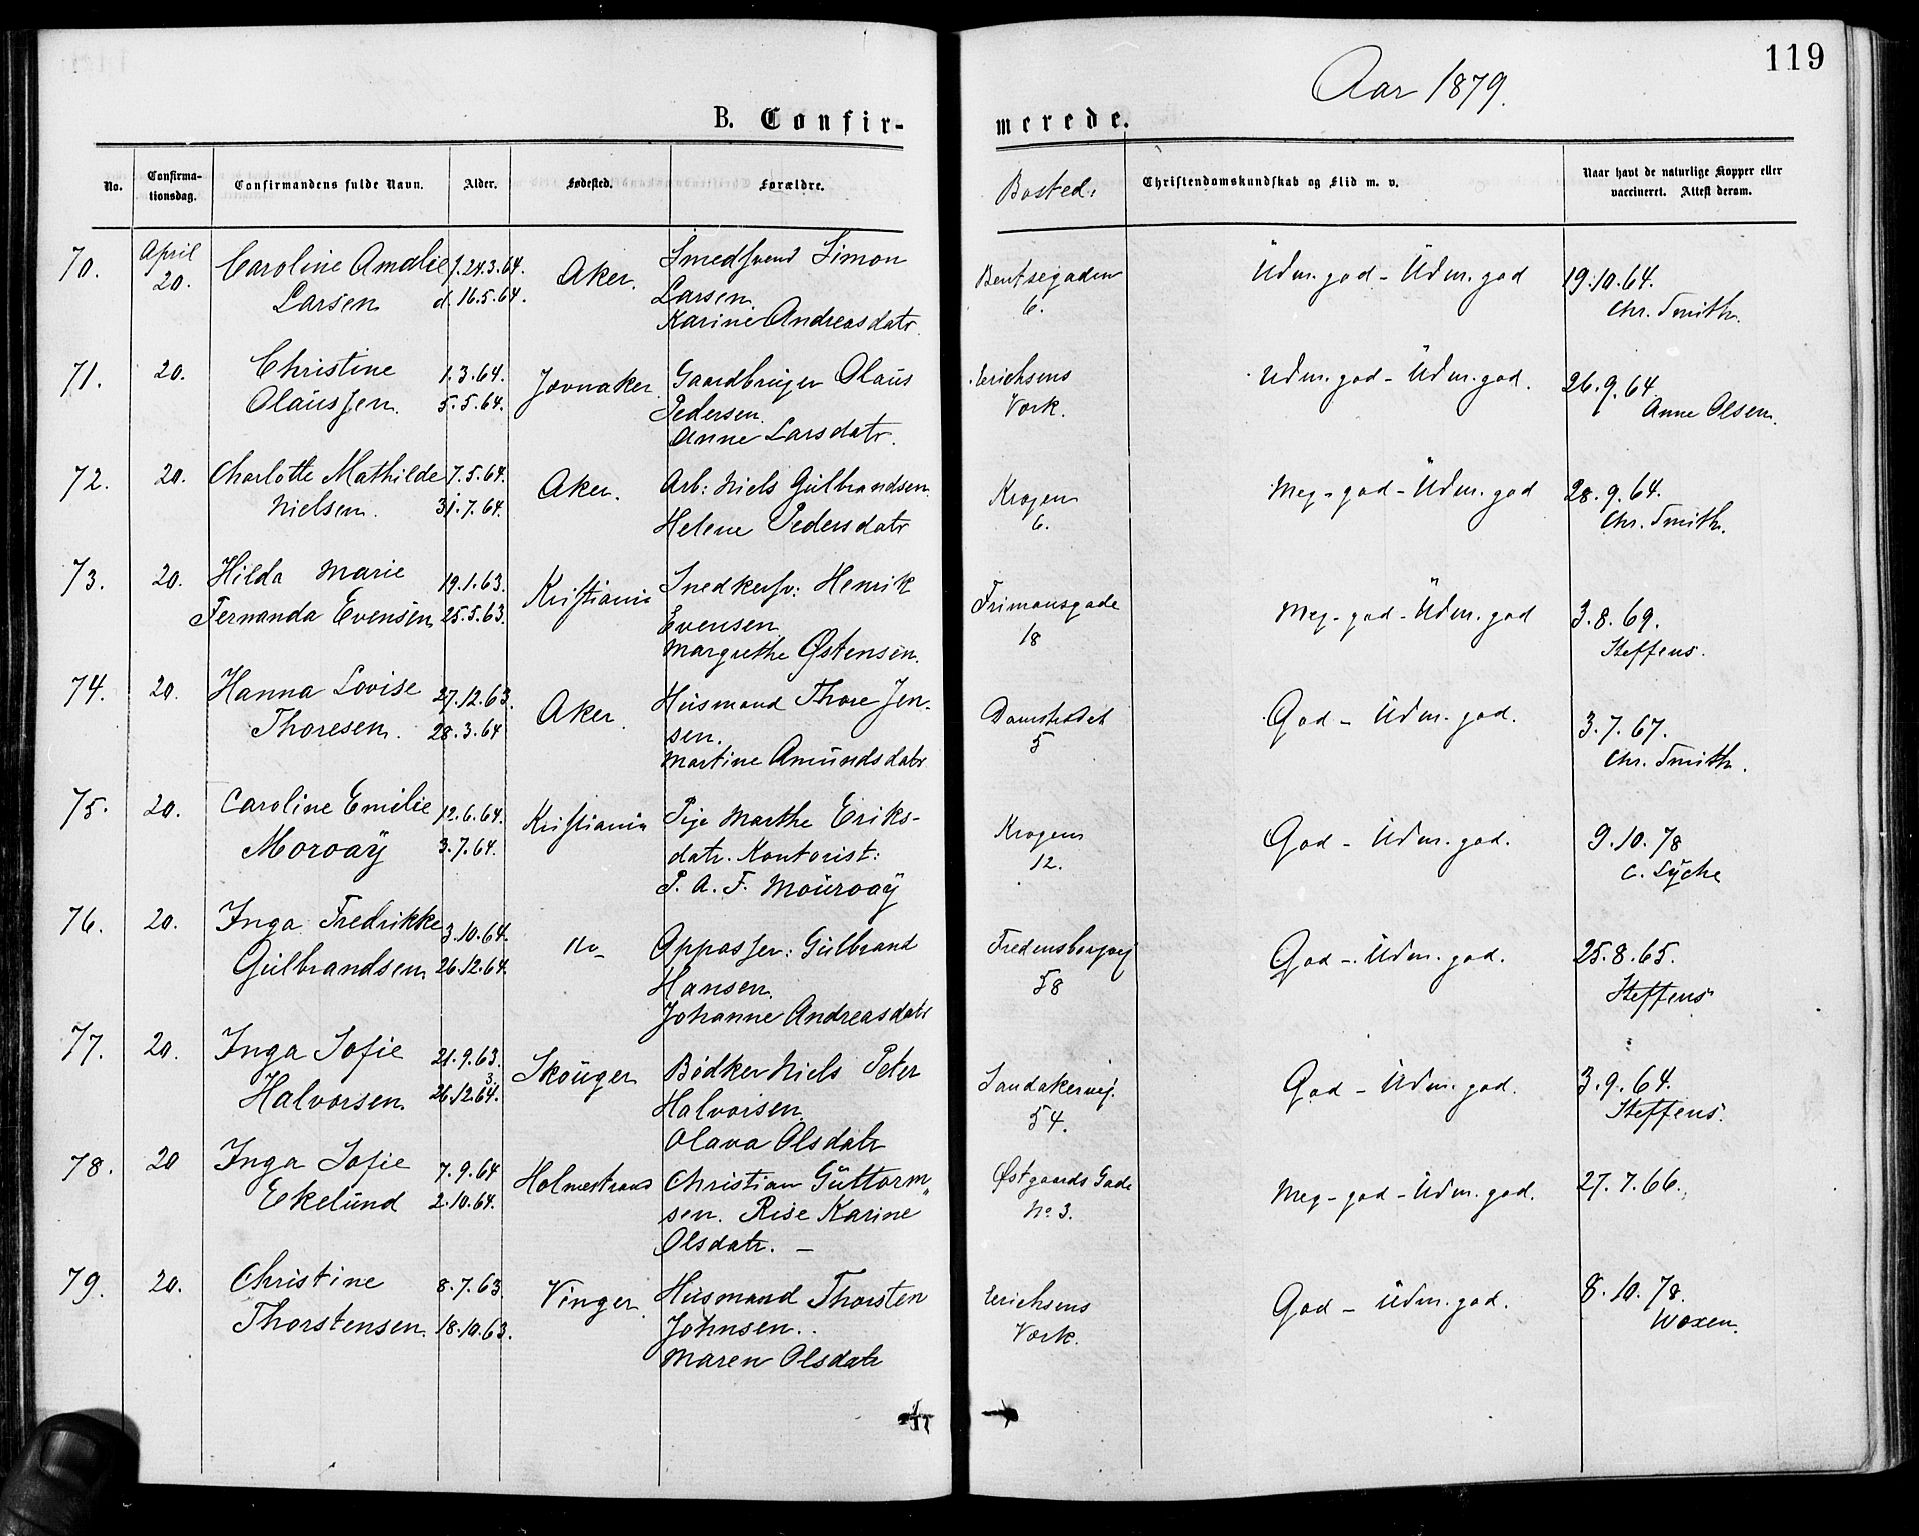 119
Aar 1879.
B. Confir-
merede.
No.
Confirma-
tionsdag.
Confirmandens fulde Navn.
Alder.
Fødested.
Forældre.
Bosted.
Christendomskundskab og Flid m. v.
Naar havt de naturlige Kopper eller
vaccineret. Attest derom.
70. April 20. Caroline Amalie Larsen f. 24.3.64. d. 16.5.64. Aker. Smedsvend Simon
Larsen.
Karine Andreasdatr.
Bentsegaden
6.
Üdm. god - Üdm. god
19.10.64.
Chr. Smith.
71. 20. Christine
Olaussen.
1.3.64.
5.5.64.
Jevnaker. Gaardbruger Olaus
Pedersen.
Anne Larsdatr.
Erichsens
Værk.
Udm. god - Üdm. god.
26.9.64
Anne Olsen.
72. 20. Charlotte Mathilde
Nielsen.
7.5.64.
31.7.64.
Aker. Arb: Niels Gülbrandsen.
Helene Pedersdatr
Krogen
6.
Meg. god - Üdm. god
28.9.64.
Chr. Smith.
73. 20. Hilda Marie
Fernanda Evensen
19.1.63.
25.5.63.
Kristiania Snedkersv: Henrik
Evensen
Margrethe Østensen.
Frimansgade
18
Meg. god - Üdm. god
3.8.69.
Steffens.
74. 20. Hanna Lovise
Thoresen.
27.12.63.
28.3.64
Aker. Husmand Thore Jen-
sen.
Martine Amündsdatr
Damstrædet
5
God - Udm. god.
3.7.67.
Chr. Smith.
75. 20. Caroline Emilie
Moroäy
12.6.64.
3.7.64.
Kristiania Pige Marthe Eriks-
datr. Kontorist:
P. A. F. Mouroäy
Krogen
12.
God - Udm. god.
9.10.78
C. Lyche
76. 20. Inga Fredrikke
Gülbrandsen
3.10.64.
26.12.64.
Oppasser: Gülbrand
Hansen.
Johanne Andreasdatr
Fredensborgvej
58
God - Udm. god.
25.8.65.
Steffens
77. 20. Inga Sofie
Halvorsen
21.9.63.
26.12.64.
3.
Skouger Bødker Niels Peter
Halvorsen.
Olava Olsdatr
Sandakervej.
54.
God - Udm. god.
3.9.64.
Steffens.
78. 20 Inga Sofie
Ekelünd
7.9.64
2.10.64.
Holmestrand Christian Guttorm-
sen. Rise Karine
Olsdatr. -
Østgaards Gade
No 3.
Meg- god - Udm. god.
27.7.66.
79. 20. Christine
Thorstensen.
8.7.63
18.10.63.
Vinger. Husmand Thorsten
Johnsen.
Maren Olsdatr
Erichsens
Værk.
God - Udm. god.
8.10.78.
Woxen.